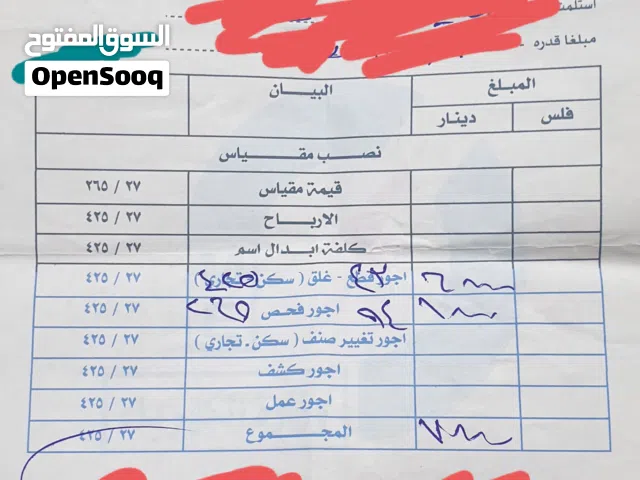 استلمت
السوق المفتوح
OpenSooq
مبلغا قدره
المبلغ البيـــان
فلس دينار
نصـــب مقـــيـــاس
قيمة مقياس ٢٧ / ٢٦٥
الارباح ٢٧ / ٤٢٥
كلفة ابدال اسم ٢٧ / ٤٢٥
اجور قطع - غلق ( سكن. تجاري ) ٢٧ / ٤٢٥
اجور فحص ٢٧ / ٤٢٥
اجور تغيير صنف ( سكن. تجاري ) ٢٧ / ٤٢٥
اجور كشف ٢٧ / ٤٢٥
اجور عمل ٢٧ / ٤٢٥
المجـــمـــوع ٢٧ / ٤٢٥